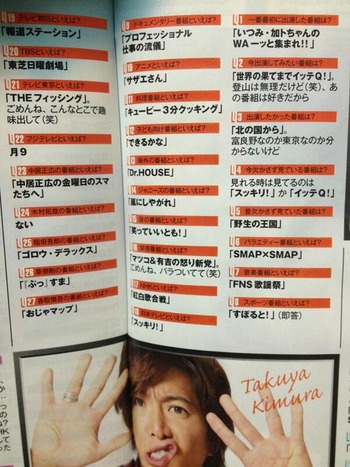 1 一番最初に出演した番組は?
「いつみ・加トちゃんの
WAーッと集まれ!!」
2 今出演してみたい番組は?
「世界の果てまでイッテQ!」。
登山は無理だけど(笑)、あ
の番組は好きだから
3 出演したかった番組は?
「北の国から」。
富良野なのか東京なのか分
からないけど
4 今欠かさず見ている番組は?
見れる時は見てるのは
「スッキリ!」か「イッテQ!」
5 昔欠かさず見ていた番組は?
「野生の王国」
6 バラエティー番組といえば?
「SMAP×SMAP」
7 音楽番組といえば?
「FNS歌謡祭」
8 スポーツ番組といえば?
「すぽると!」(即答)
9 ドキュメンタリー番組といえば?
「プロフェッショナル
仕事の流儀」
10 アニメといえば?
「サザエさん」
11 料理番組といえば?
「キューピー3分クッキング」
12 子ども向け番組といえば?
「できるかな」
13 海外の番組といえば?
「Dr.HOUSE」
14 ジャニーズの番組といえば?
「嵐にしやがれ」
15 昼の番組といえば?
「笑っていいとも!」
16 深夜番組といえば?
「マツコ&有吉の怒り新党」。
ごめんね、バラついてて(笑)
17 NHKといえば?
「紅白歌合戦」
18 日本テレビといえば?
「スッキリ!」
テレビ朝日といえば?
「報道ステーション」
20 TBSといえば?
「東芝日曜劇場」
21 テレビ東京といえば?
「THEフィッシング」。
ごめんね、こんなとこで趣
味出して(笑)
22 フジテレビといえば?
月9
23 中居正広の番組といえば?
「中居正広の金曜日のスマ
たちへ」
24 木村拓哉の番組といえば?
ない
25 稲垣吾郎の番組といえば?
「ゴロウ・デラックス」
26 草彅剛の番組といえば?
「『ぷっ』すま」
27 香取慎吾の番組といえば?
「おじゃマップ」
Takuya
Kimura